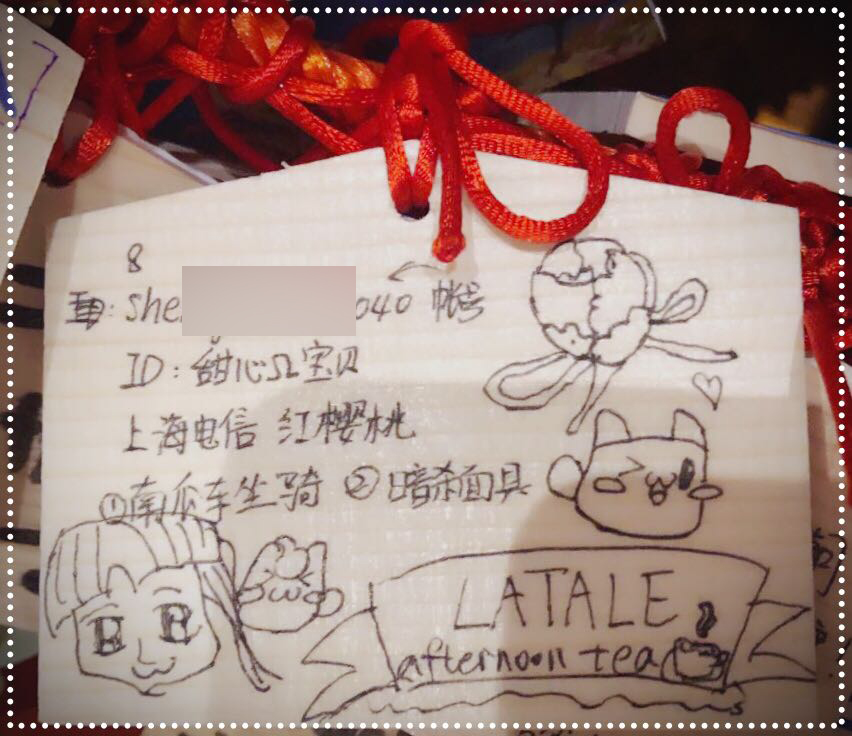 8
she 040 帐号
ID:甜心Ω宝贝
上海电信 红樱桃
①南瓜车坐骑 ②暗杀面具
LATALE
afternoon tea